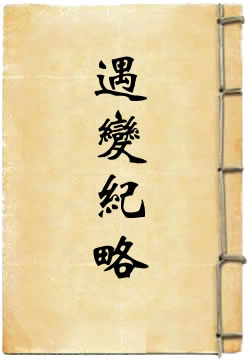 遇變紀略